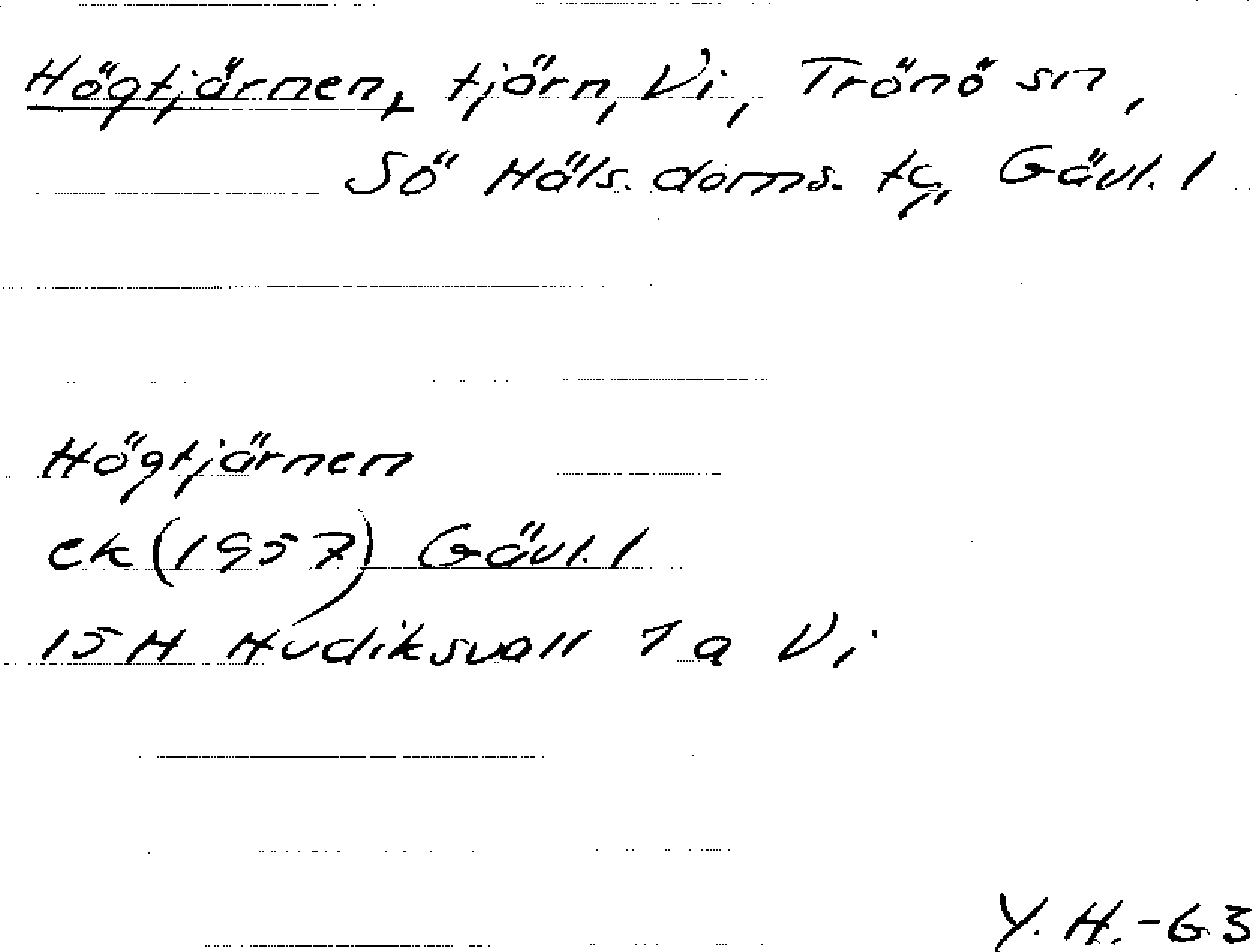 Högtjärnen, tjärn, Vi, Trönö sn,
Sö Häls. doms. tg, Gävl. l
Högtjärnen
ek (1957) Gävl. l
15H Hudiksvall 1 a Vi
Y. H. - 63